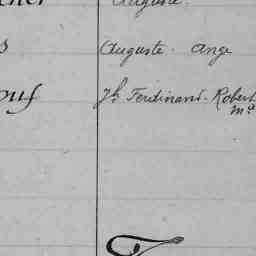 Auguste.
s Auguste. Ange
ouf Jh Ferdinand. Robert
Md